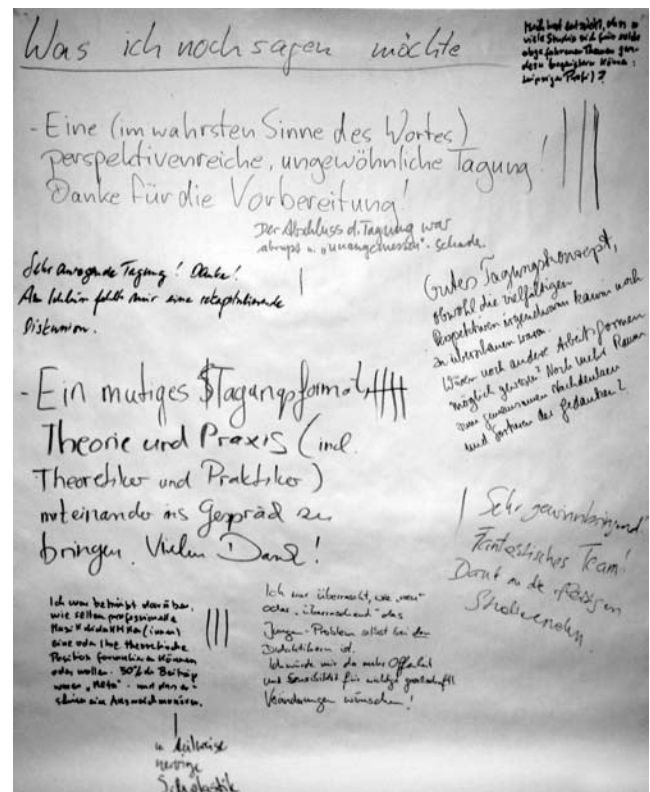 Was ich noch sagen möchte
Mich hat entzückt, dass so
viele Studis sich für solch
abgefahrenen Themen gera-
dezu begeistern können:
Leipziger Profs)?
- Eine (im wahrsten Sinne des Wortes)
perspektivenreiche, ungewöhnliche Tagung!
Danke für die Vorbereitung!
Der Abschluss d. Tagung war
abrupt u. „unangemessen“. Schade.
Sehr anregende Tagung! Danke!
Am Schluss fehlte mir eine rekapitulierende
Diskussion.
Gutes Tagungskonzept,
obwohl die vielfältigen
Perspektiven irgendwann kaum noch
zu überschauen waren.
Wären noch andere Arbeitsformen
möglich gewesen? Noch mehr Raum
zum gemeinsamen Nachdenken
und Sortieren der Gedanken?
- Ein mutiges Tagungsformat,
Theorie und Praxis (incl.
Theoretiker und Praktiker)
miteinander ins Gespräch zu
bringen. Vielen Dank!
Sehr gewinnbringend!
Fantastisches Team!
Dank an die fleißigen
Studierenden.
Ich war betrübt darüber,
wie selten professionelle
Musikdidaktiker(innen)
eine oder ihre theoretische
Position formulieren können
oder wollen. 50% der Beiträge
waren „Meta“ - und das
ein Ausweichmanöver.
Ich war überrascht, wie „neu“
oder „überraschend“ das
Jungen-Problem selbst bei den
Didaktikern ist.
Ich würde mir da mehr Offenheit
und Sensibilität für wichtige gesellschaftl.
Veränderungen wünschen!
teilweise
nervige
Scholastik